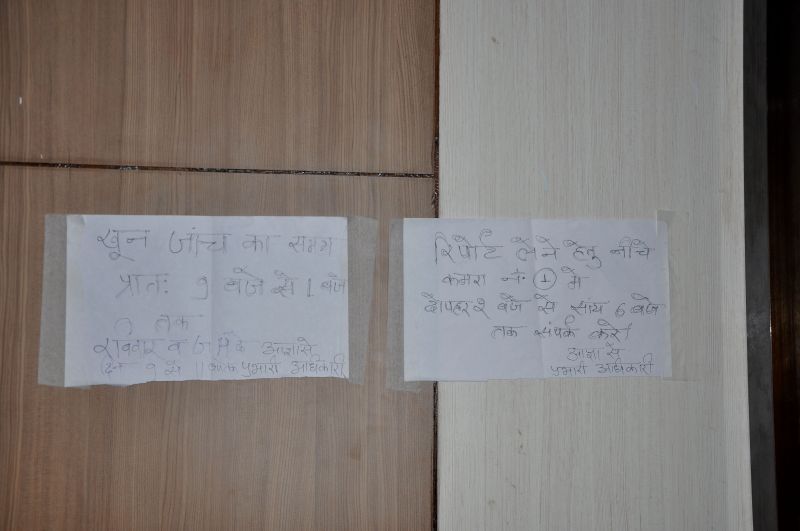 खून जांच का समय
प्रात: 9 बजे से 1 बजे
तक
रविवार व
दिन 9 से 11 बजे तक
आज्ञा से
प्रभारी अधिकारी
रिपोर्ट लेने हेतु नीचे
कमरा नं. 1 में
दोपहर 2 बजे से सांय 6 बजे
तक संपर्क करें।
आज्ञा से
प्रभारी अधिकारी